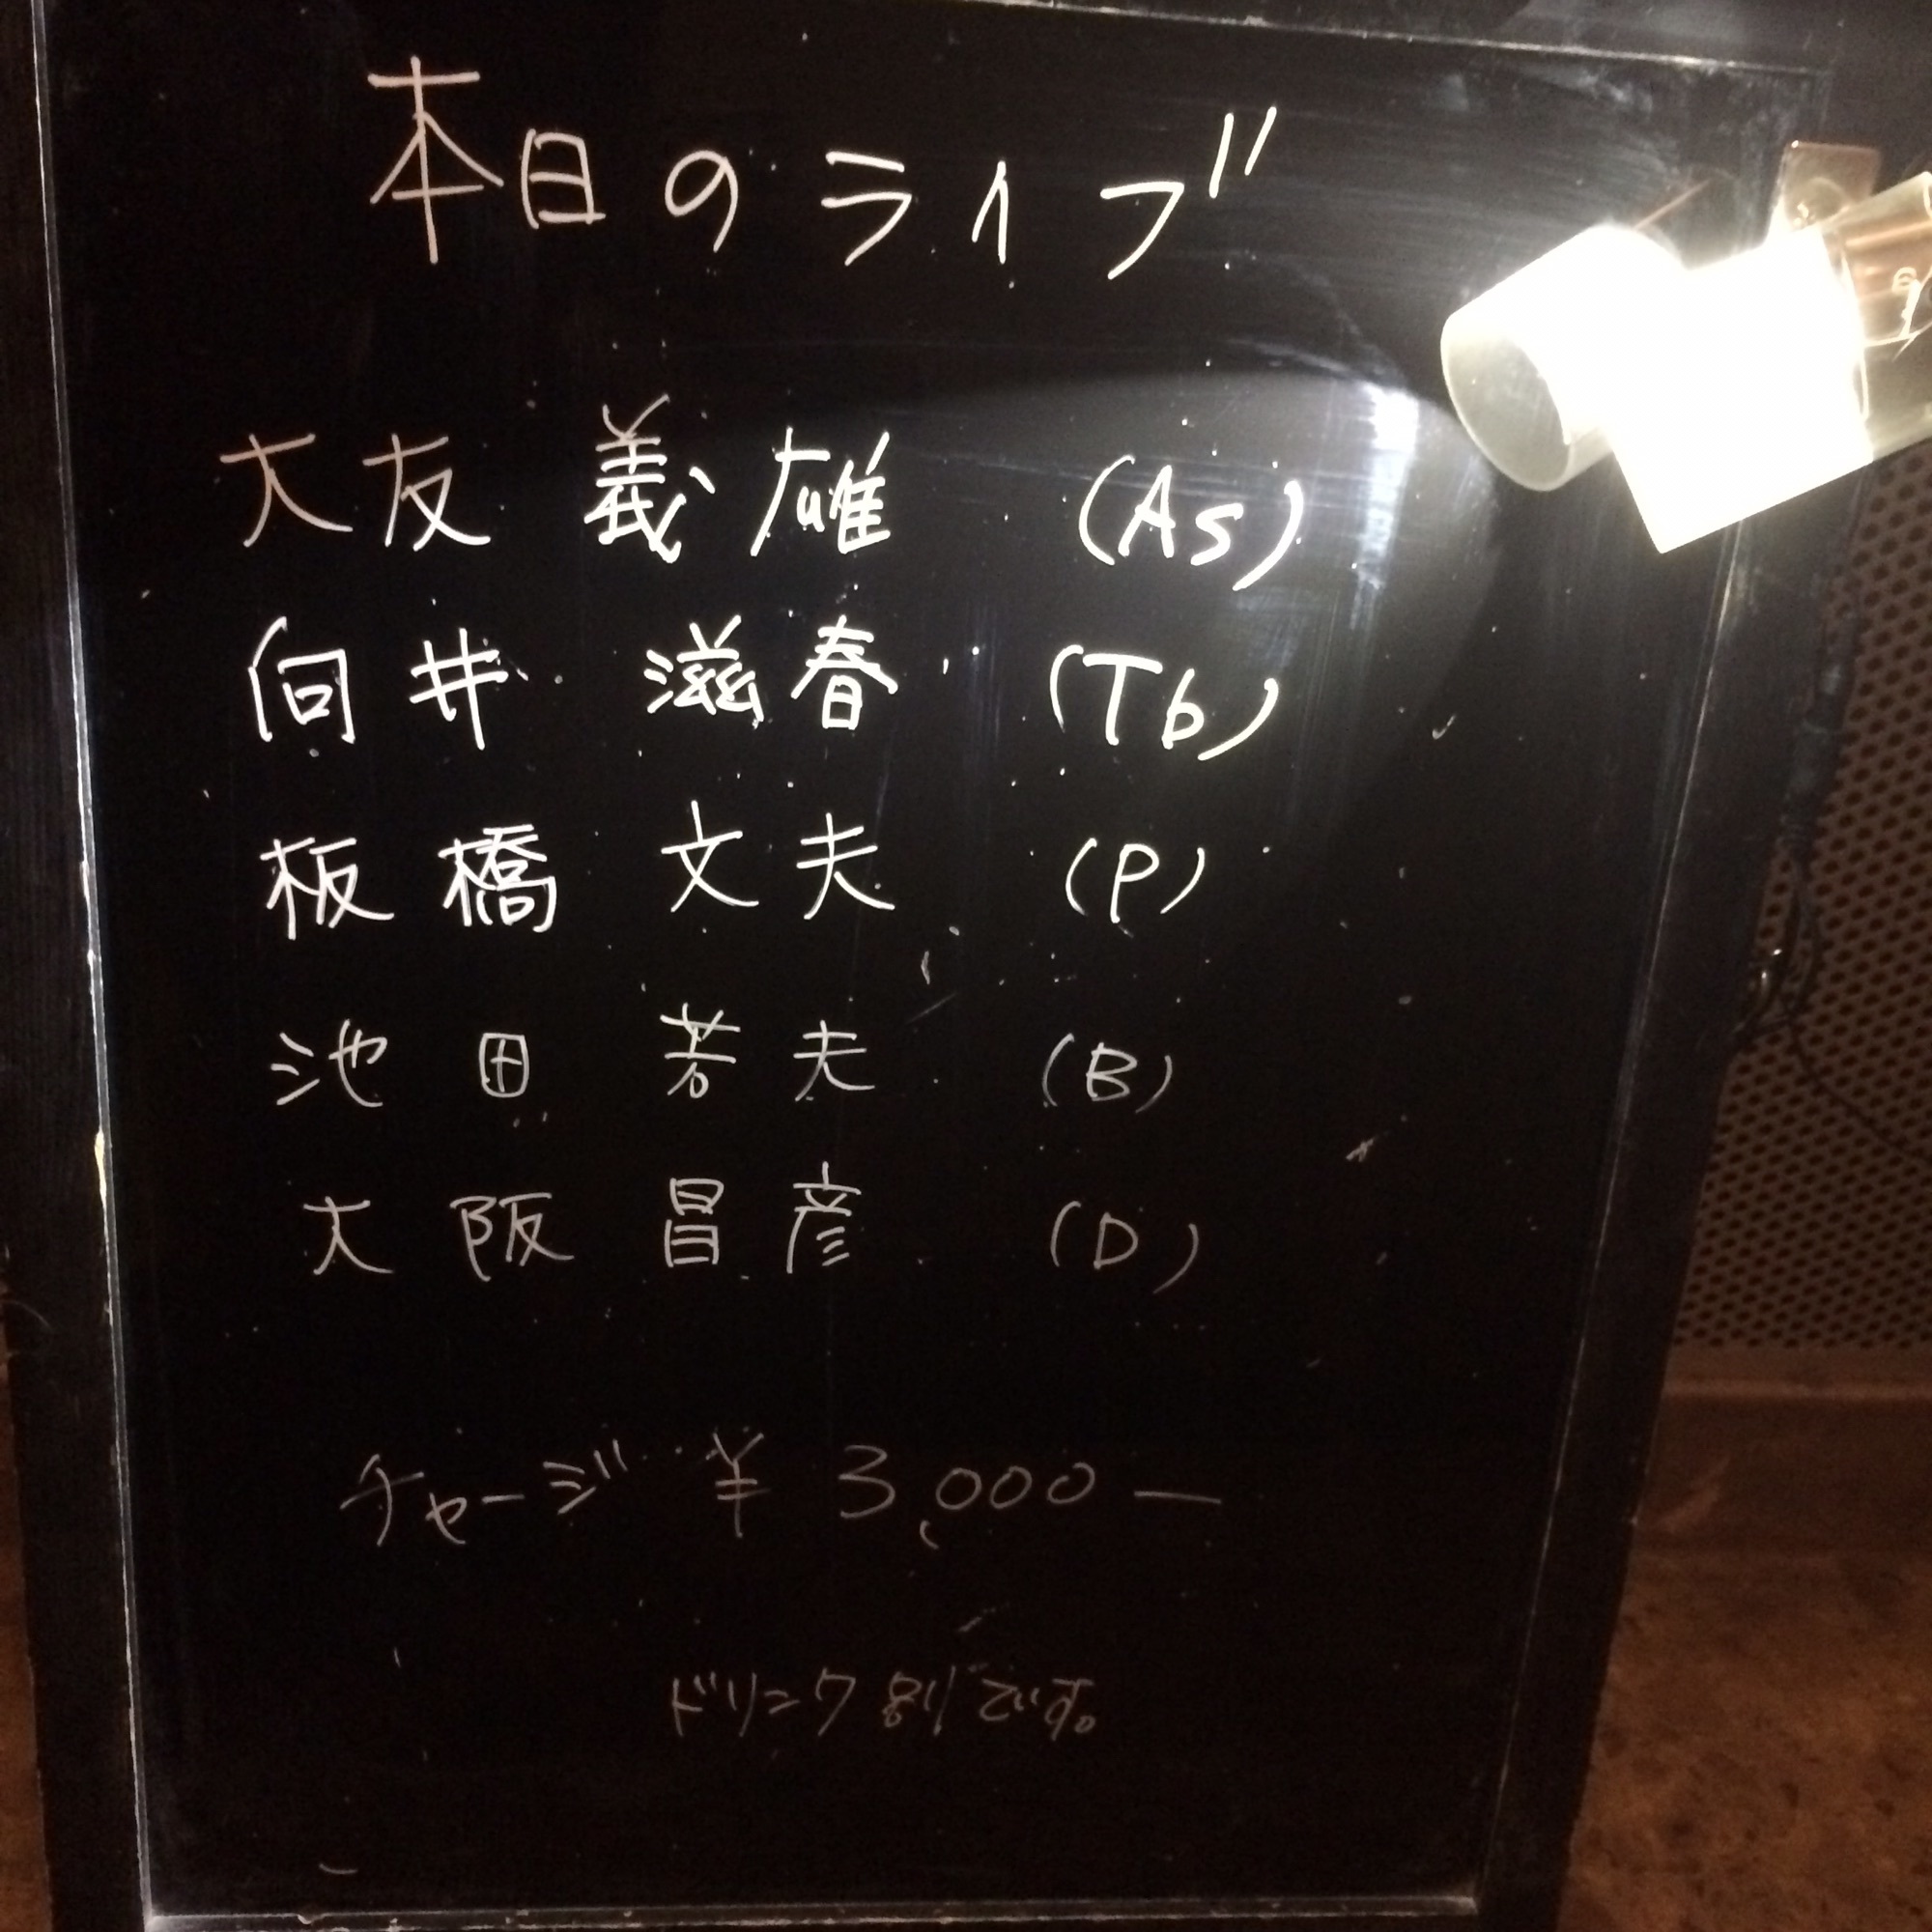 本日のライブ
大友 義雄 (As)
向井 滋春 (Tb)
板橋 文夫 (P)
池田 芳夫 (B)
大阪 昌彦 (D)
チャージ ¥3,000—
ドリンク別です。